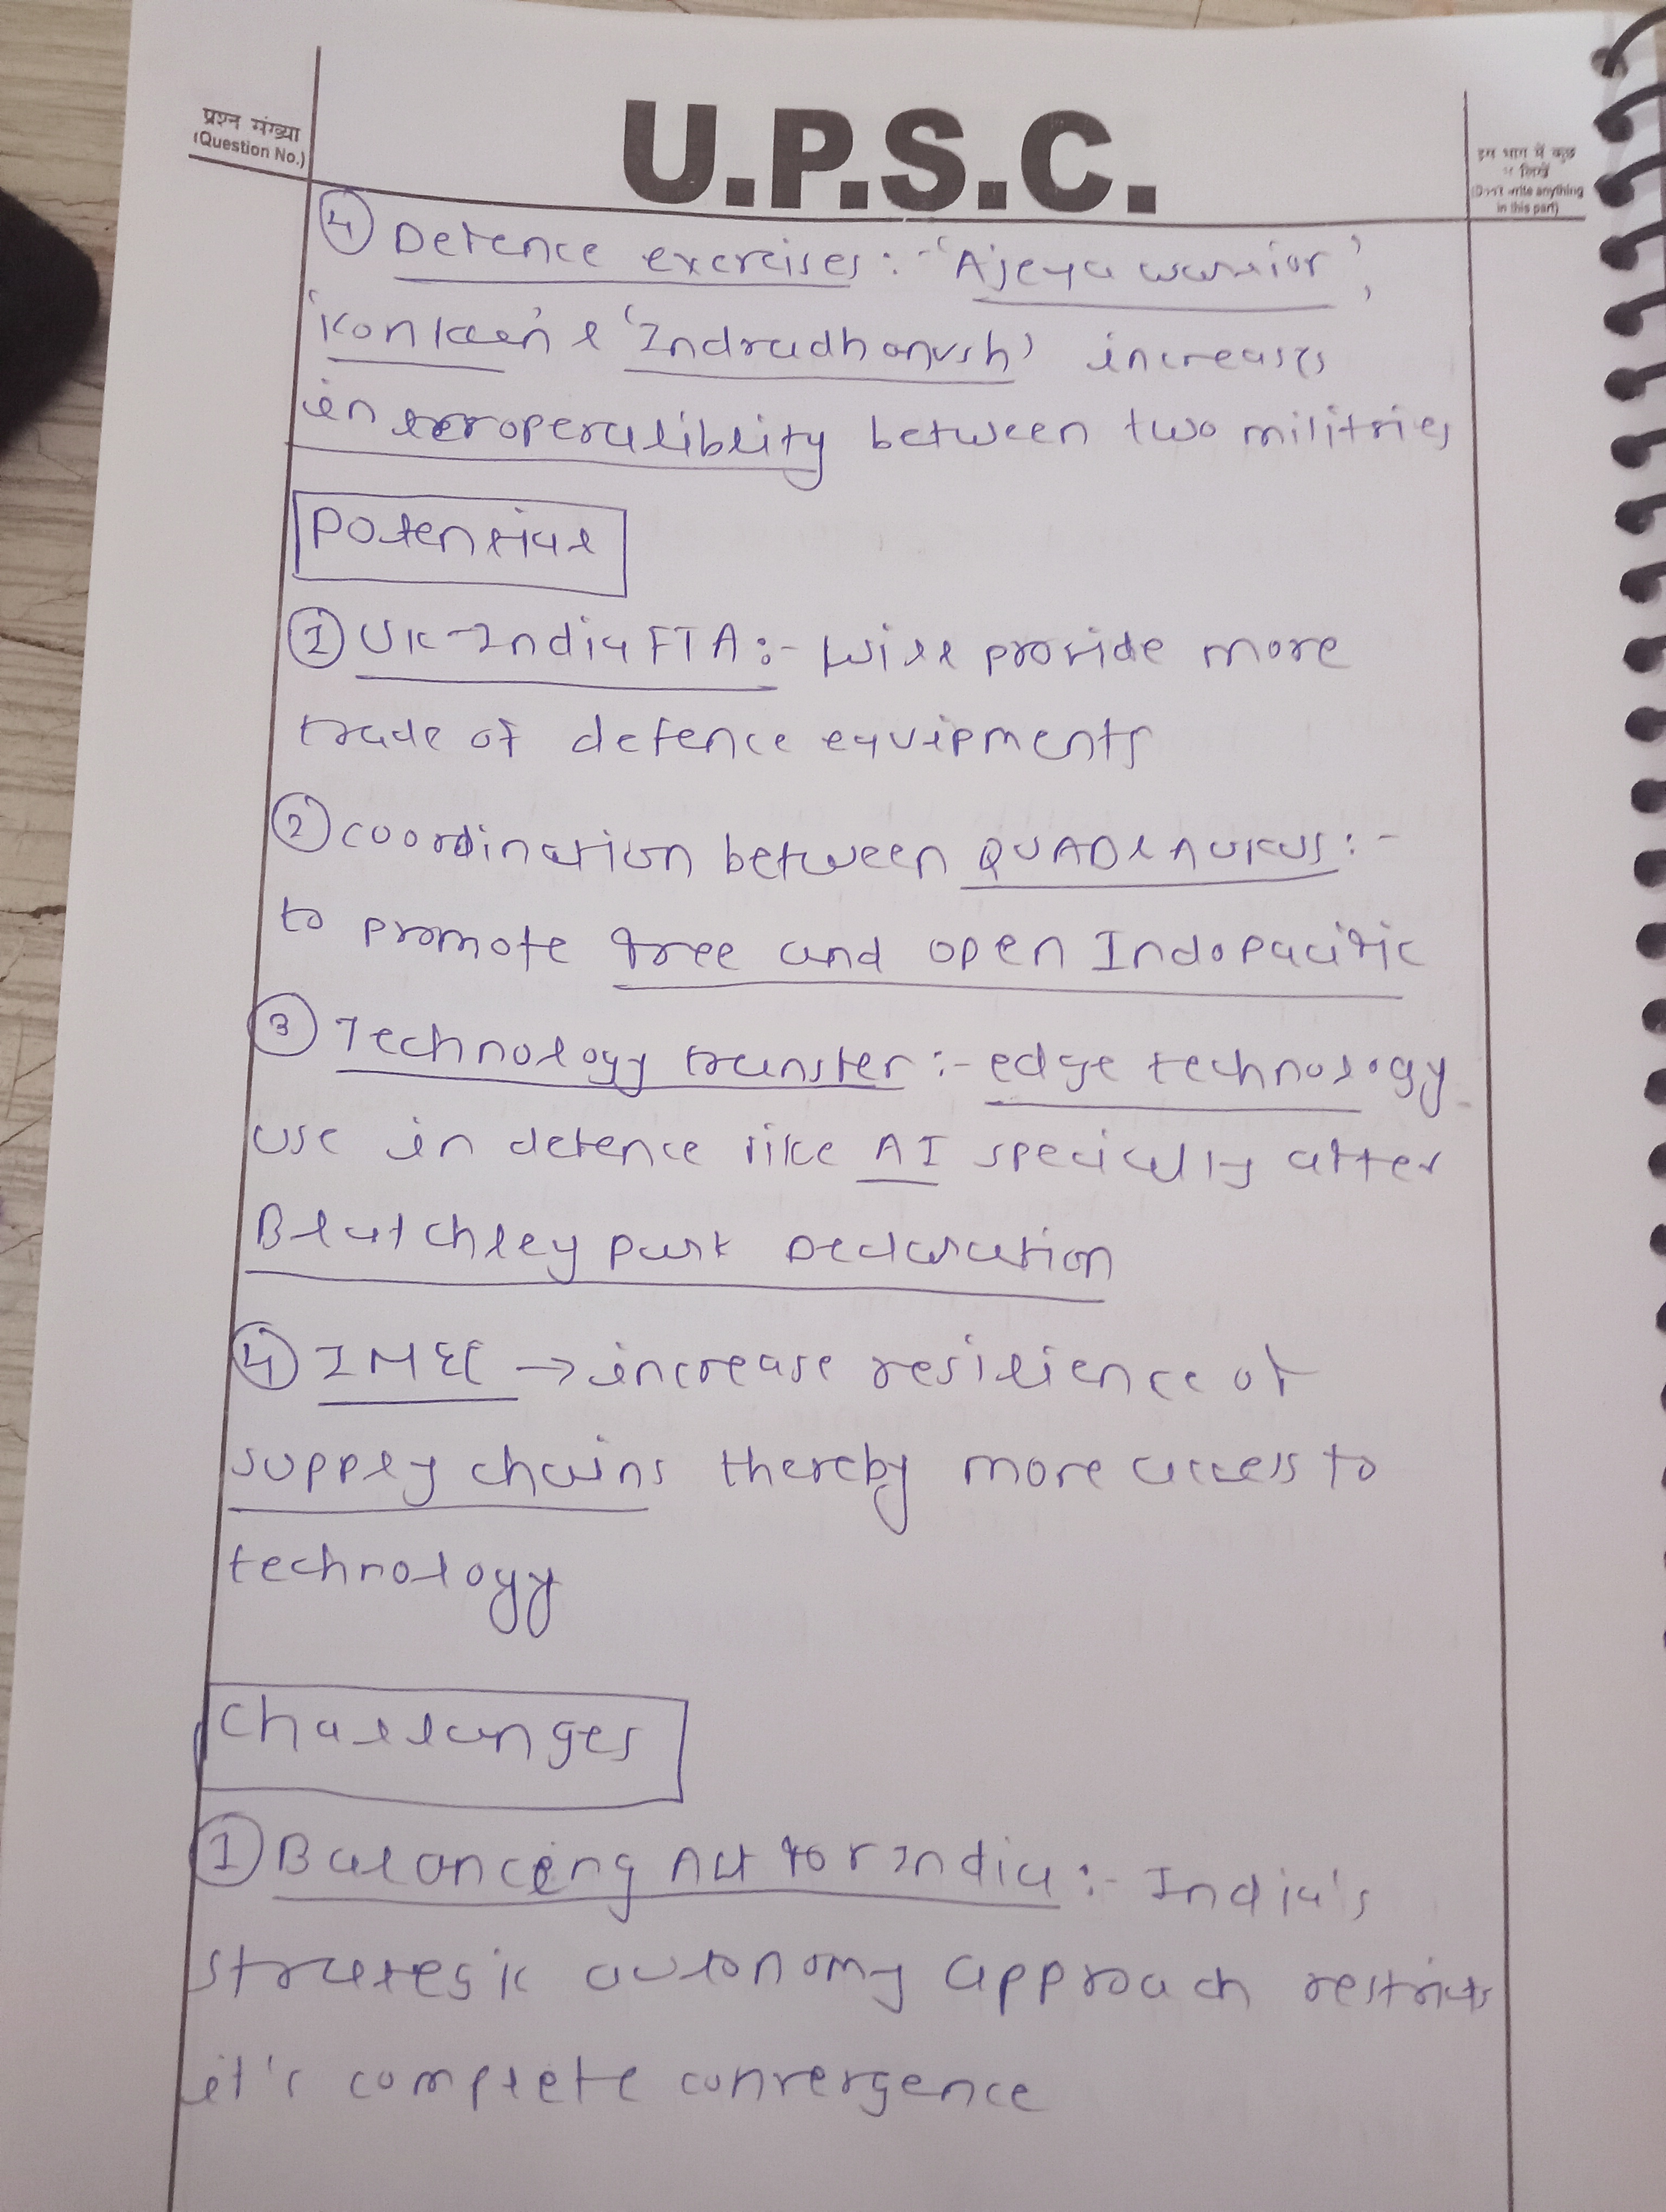 प्रश्न संख्या
(Question No.)
U.P.S.C.
इस भाग में कुछ
न लिखें
(Don't write anything
in this part)
④ Defence exercises :- 'Ajeya warrior',
'Konkan' & 'Indradhanush' increases
interoperaliblity between two militries
Potential
① UK-India FTA :- Will provide more
trade of defence equipments
② coordination between QUAD & AUKUS :-
to promote free and open Indopacific
③ Technology transfer :- edge technology
use in defence like AI specially after
Blatchley park Declaration
④ IMEC → increase resilience of
supply chains thereby more access to
technology
Challanges
① Balancing Act for India :- India's
strategic autonomy approach restricts
it's complete convergence